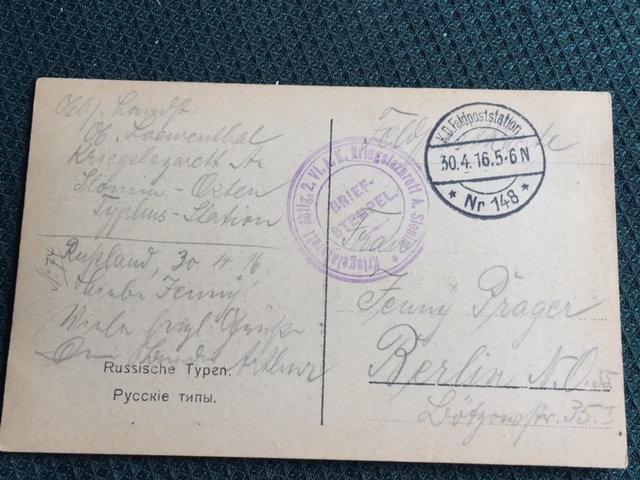 Landst.
Loewenthal
Kriegslazarett A.
Slonim-Osten
Typhus-Station
Rußland, 30 4. 16
Liebe Fenny!
Viele herzl. Grüße
Arthur
Russische Typen.
Русскіе типы.
Kriegslazarett Abtlg. 2. VI. A.K. Kriegslazarett A. Slonim
BRIEF-
STEMPEL.
K.D. Feldpoststation
30.4.16.5-6 N
* Nr 148 *
Frau
Fenny Prager
Berlin N.O.
Bötzowstr. 35